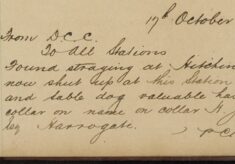 17th October
From D.C.C.
To All Stations
Found straying at Hitchin
now shut up at this Station
and sable dog valuable ha
collar on name on collar H
Harrogate.